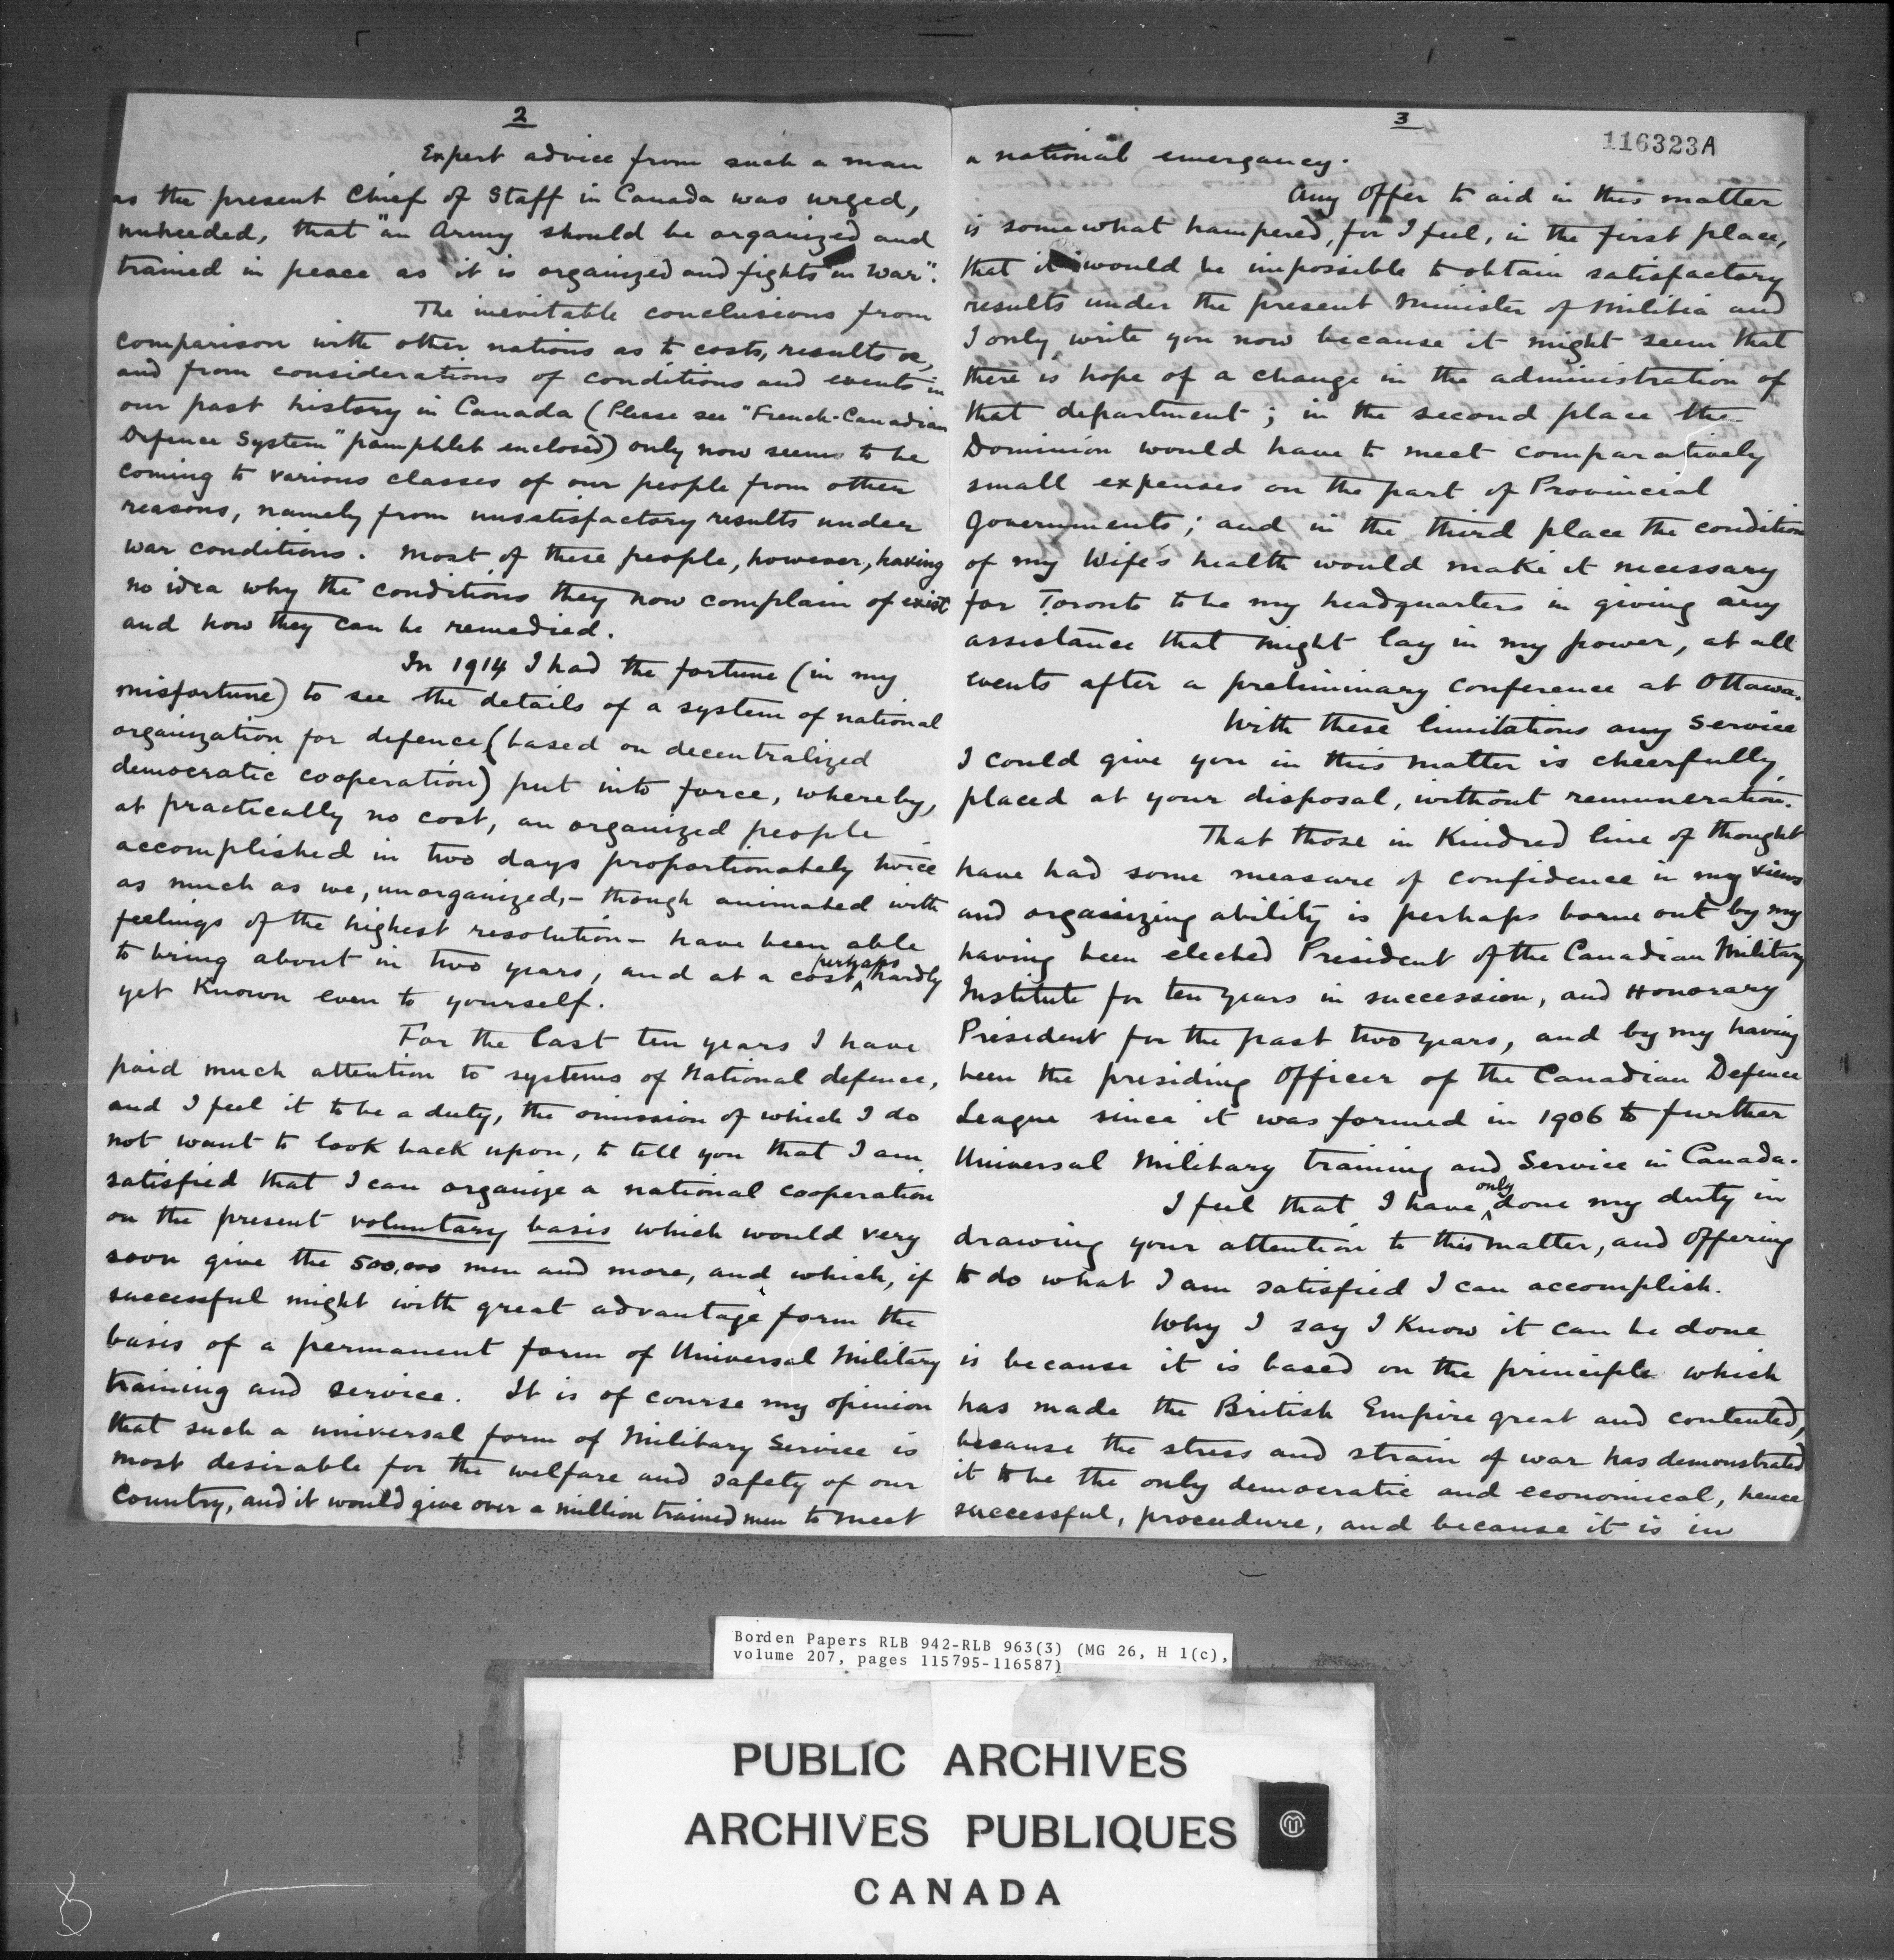 2
Expert advice from such a man
as the present Chief of Staff in Canada was urged,
unheeded, that "an Army should be organized and
trained in peace as it is organized and fights in War".
The inevitable conclusions from
comparison with other nations as to costs, results &c,
and from considerations of conditions and events in
our past history in Canada (Please see "French-Canadian
Defence System" pamphlet enclosed) only now seems to be
coming to various classes of our people from other
reasons, namely from unsatisfactory results under
war conditions. Most of these people, however, having
no idea why the conditions they now complain of exist
and how they can be remedied.
In 1914 I had the fortune (in my
misfortune) to see the details of a system of national
organization for defence (based on decentralized
democratic cooperation) put into force, whereby,
at practically no cost, an organized people
accomplished in two days proportionately twice
as much as we, unorganized, - though animated with
feelings of the highest resolution - have been able
to bring about in two years, and at a cost perhaps hardly
yet known even to yourself.
For the last ten years I have
paid much attention to systems of National defence,
and I feel it to be a duty, the omission of which I do
not want to look back upon, to tell you that I am
satisfied that I can organize a national cooperation
on the present voluntary basis which would very
soon give the 500,000 men and more, and which, if
successful might with great advantage form the
basis of a permanent form of Universal Military
training and service. It is of course my opinion
that such a universal form of Military Service is
most desirable for the welfare and safety of our
Country, and it would give over a million trained men to meet
3
116323A
a national emergancy.
Any offer to aid in this matter
is somewhat hampered, for I feel, in the first place,
that it would be impossible to obtain satisfactory
results under the present Minister of Militia and
I only write you now because it might seem that
there is hope of a change in the administration of
that department; in the second place the
Dominion would have to meet comparatively
small expenses on the part of Provincial
Governments; and in the third place the condition
of my Wife's health would make it necessary
for Toronto to be my headquarters in giving any
assistance that might lay in my power, at all
events after a preliminary conference at Ottawa.
With these limitations any service
I could give you in this matter is cheerfully
placed at your disposal, without remuneration.
That those in Kindred line of thought
have had some measure of confidence in my views
and organizing ability is perhaps borne out by my
having been elected President of the Canadian Military
Institute for ten years in succession, and Honorary
President for the past two years, and by my having
been the presiding Officer of the Canadian Defence
League since it was formed in 1906 to further
Universal Military training and Service in Canada.
I feel that I have only done my duty in
drawing your attention to this matter, and offering
to do what I am satisfied I can accomplish.
Why I say I Know it can be done
is because it is based on the principle which
has made the British Empire great and contented,
because the stress and strain of war has demonstrated
it to be the only democratic and economical, hence
successful, procedure, and because it is in
Borden Papers RLB 942-RLB 963(3) (MG 26, H 1(c),
volume 207, pages 115795-116587)
PUBLIC ARCHIVES
ARCHIVES PUBLIQUES
CANADA